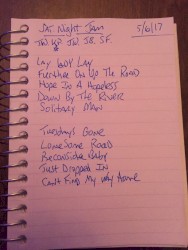 Sat Night Jam 5/6/17
TW KP JW JB SF
Lay Lady Lay
Further On Up The Road
Hope In A Hopeless
Down By The River
Solitary Man
Tuesdays Gone
Lonesome Road
Reconsider Baby
Just Dropped In
Can't Find My Way Home